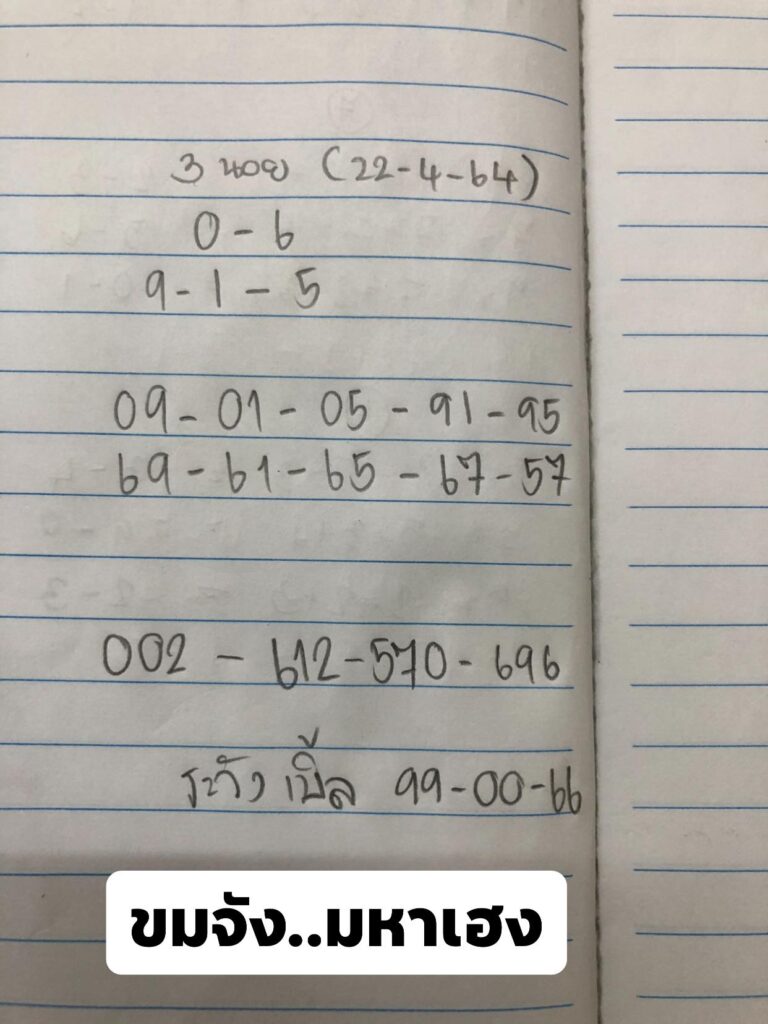 3 นอย (22-4-64)
0-6
9-1-5
09-01-05-91-95
69-61-65-67-57
002-612-570-696
ระวัง เบิ้ล 99-00-66
ขมจัง..มหาเฮง